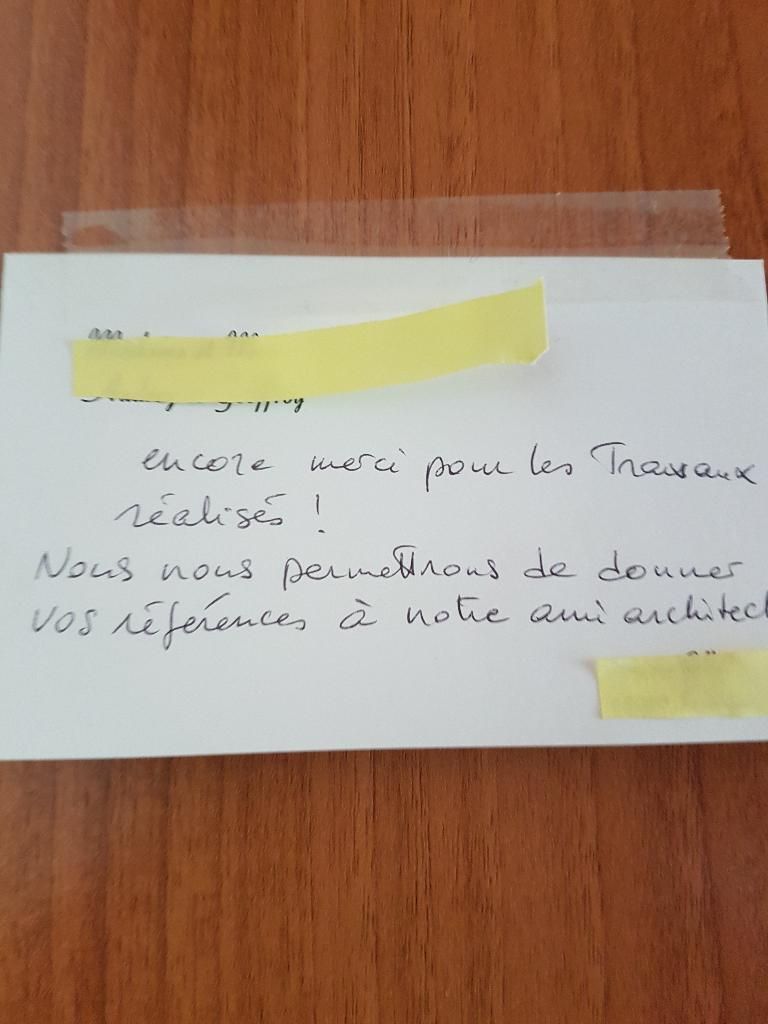 encore merci pour les Travaux
réalisés !
Nous nous permettrons de donner
vos références à notre ami architect